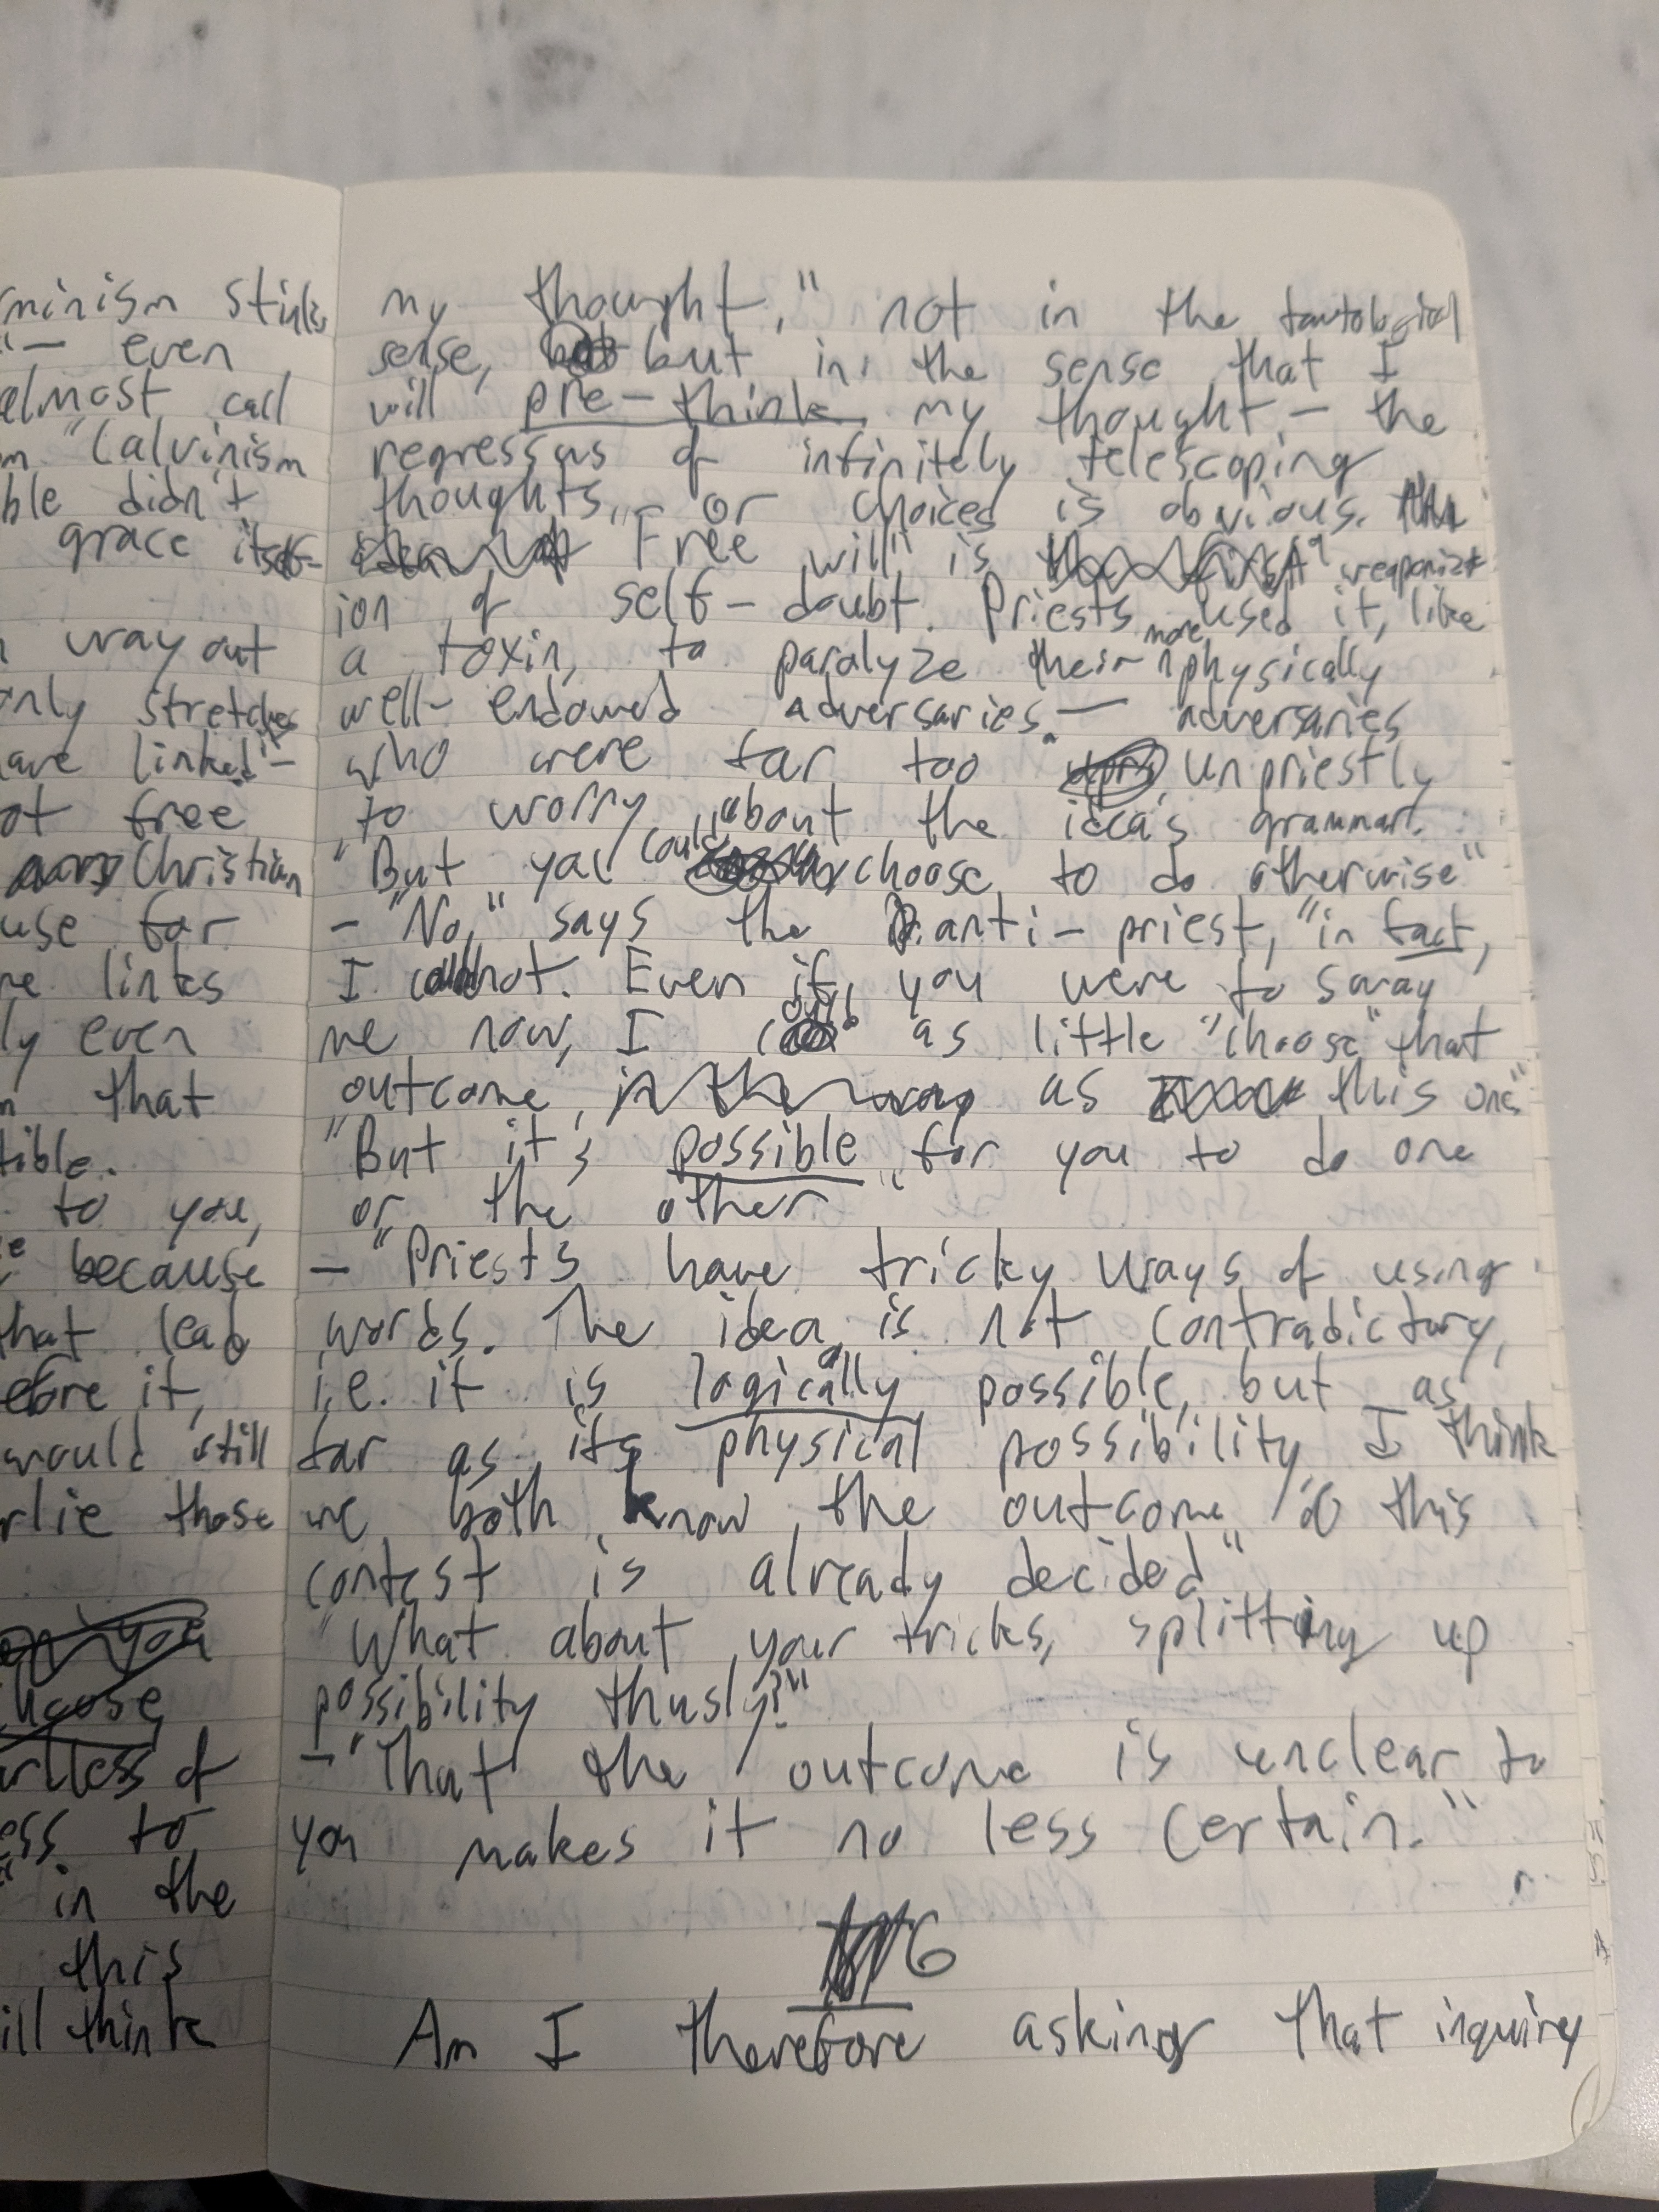 minism stinks
— even
almost call
"Calvinism
ble didn't
grace itself-
way out
only stretches
have linked"-
ot free
Christian
use for
re links
ly even
that
tible.
to you,
because
that lead
efore it,
would still
rlie those
you
choose
of
ess to
in the
this
ill think
my thought," not in the tautological
sense, but in the sense that I
will pre-think my thought — the
regressus of infinitely telescoping
thoughts — or choices is obvious.
"Free will" is weaponizat
ion of self-doubt. Priests used it, like
a toxin, to paralyze their more physically
well-endowed adversaries. — adversaries
who were far too unpriestly
to worry about the idea's grammar.
"But you could choose to do otherwise"
- "No," says the anti-priest, "in fact,
I cannot. Even if you were to sway
me now, I as little "choose" that
outcome, in the way as this one"
"But it's possible for you to do one
or the other"
- "Priests have tricky ways of using
words. The idea is not contradictory,
i.e. it is logically possible, but as
far as its physical possibility, I think
we both know the outcome of this
contest is already decided"
"What about your tricks, splitting up
possibility thusly?"
- "That the outcome is unclear to
you makes it no less certain."
6
Am I therefore asking that inquiry